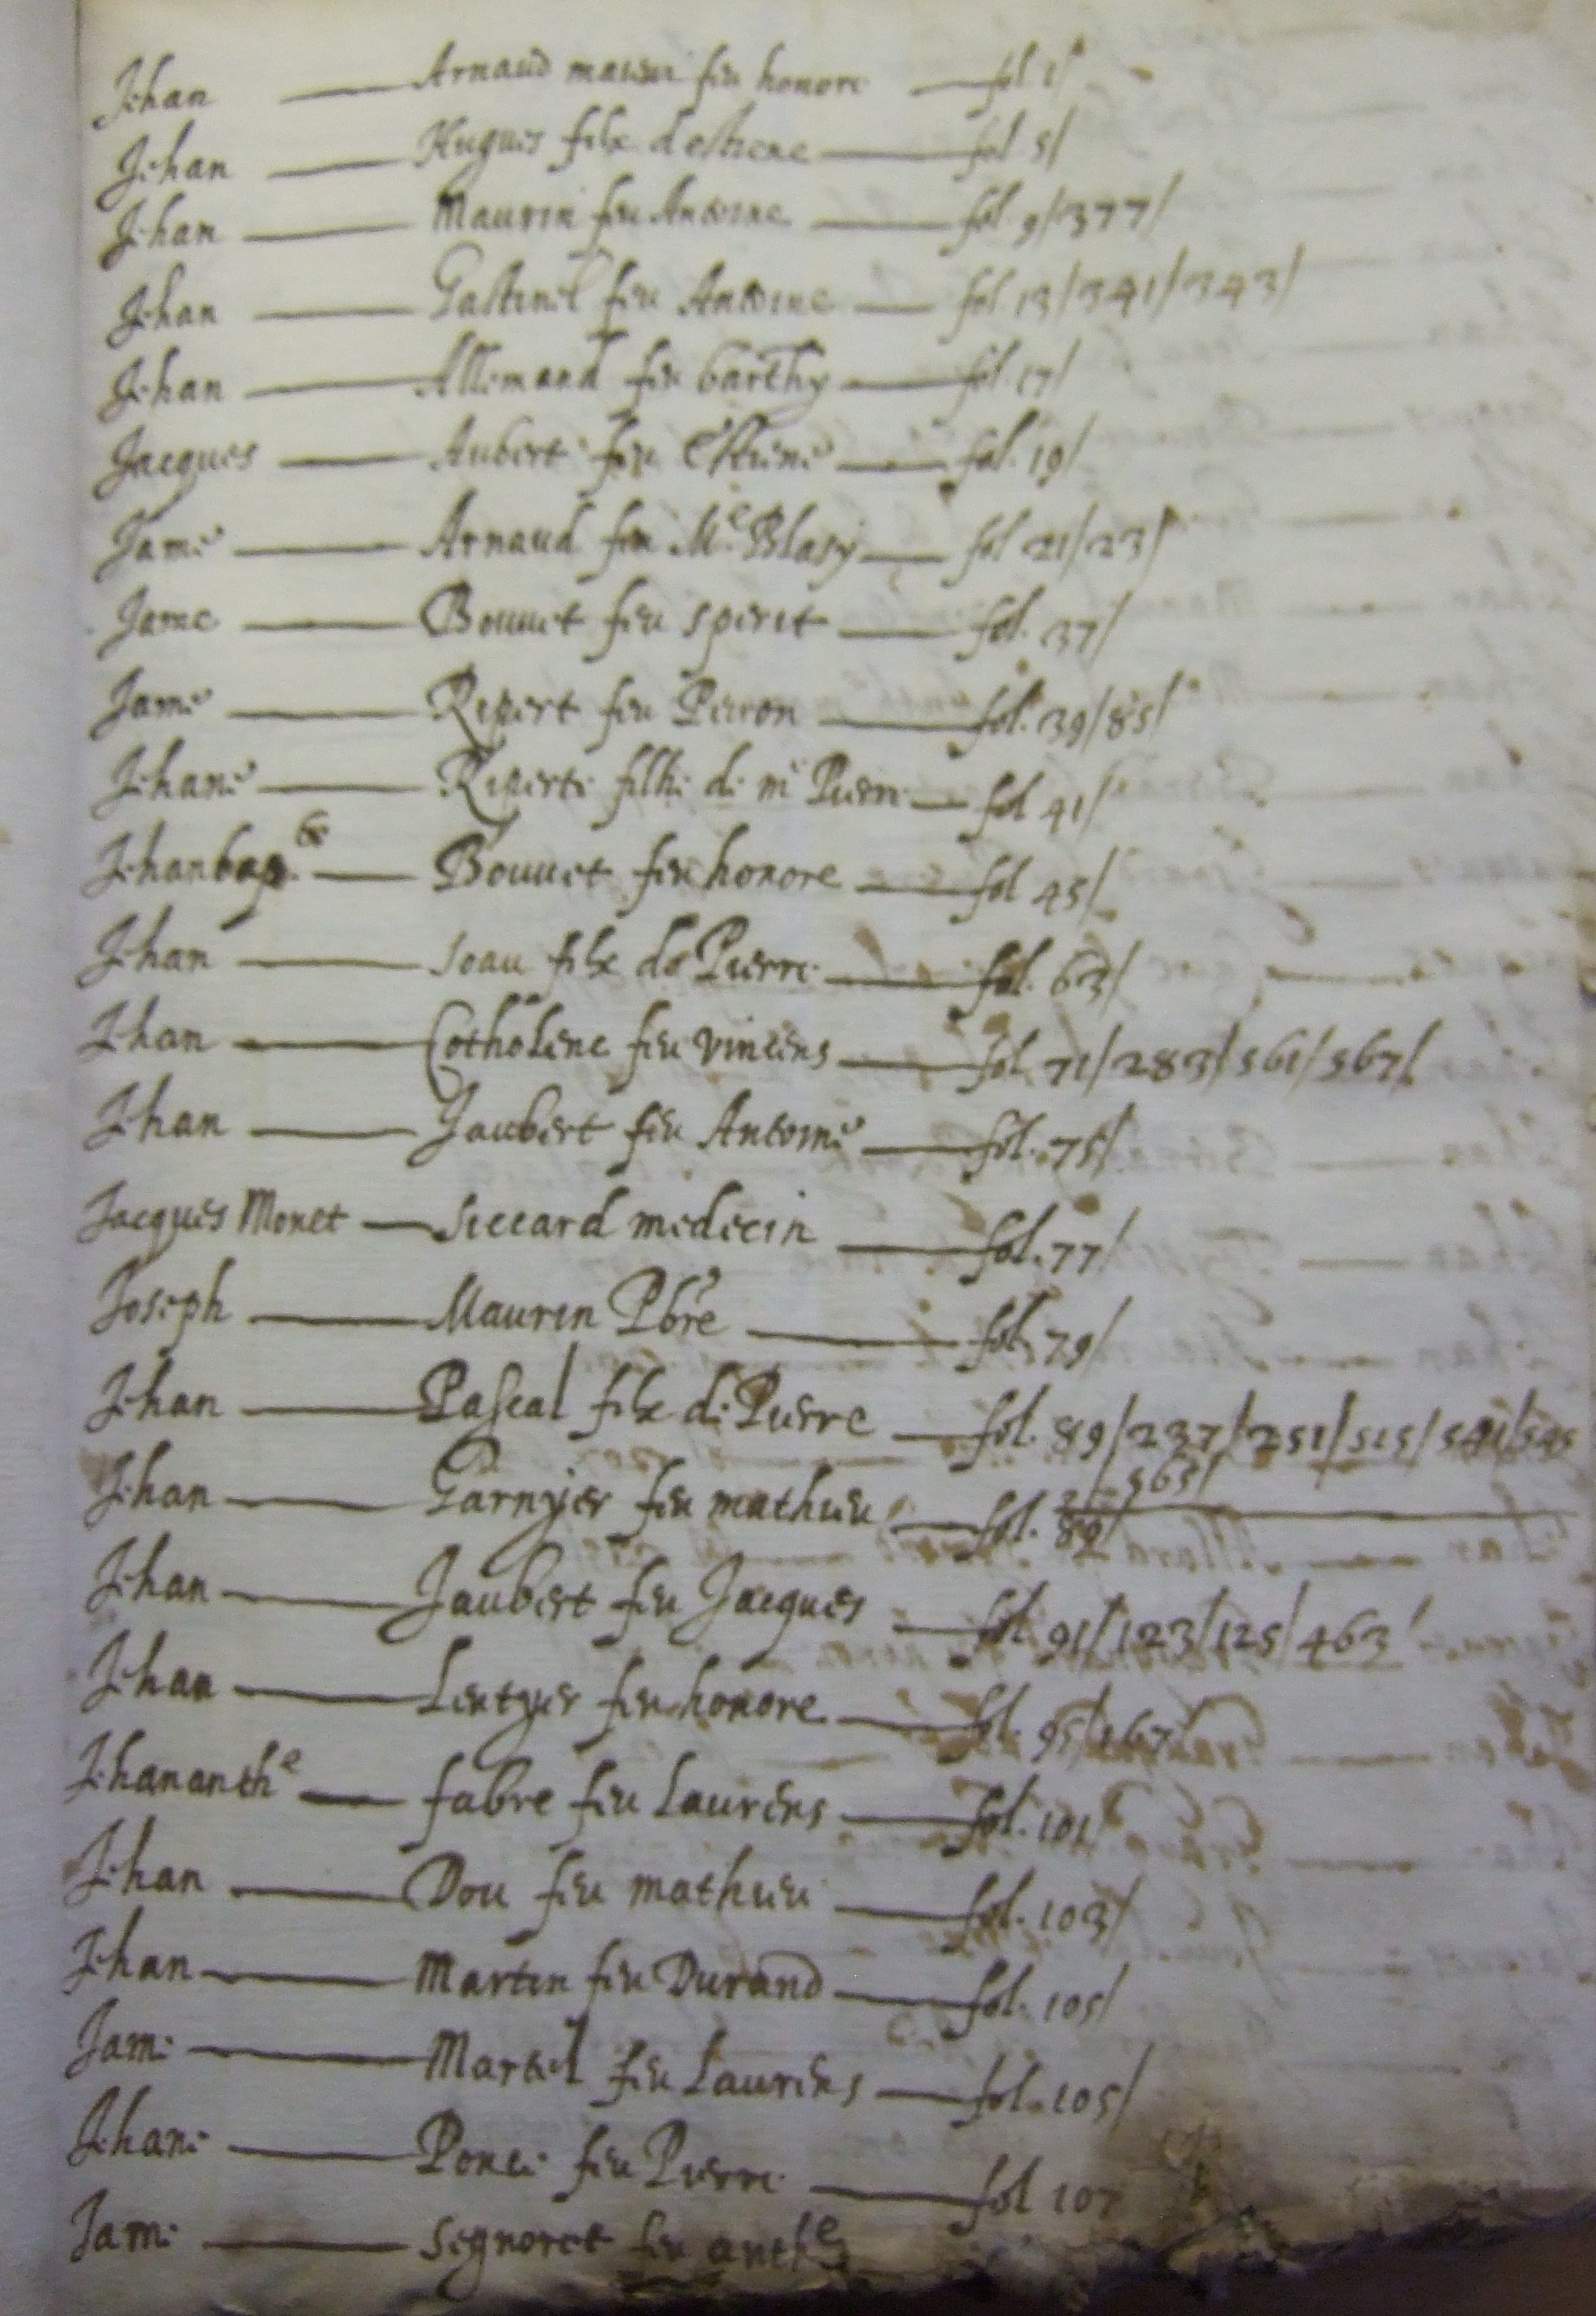 Jehan Arnaud feu honore fol 1/
Jehan Hugues filx d'estiene fol 5/
Jehan Maurin feu Antoine fol 9/377/
Jehan Gastinel feu Antoine fol 13/341/343/
Jehan Allemand feu barthy fol 17/
Jacques Aubert feu Estiene fol. 19/
Jame Arnaud feu Me Blasy fol 21/23/
Jame Bouuet feu sperit fol. 37/
Jame Repert feu Peiron fol. 39/85/
Jehane Reperte filhe de me Pierre fol 41/
Jehanbapte Bouuet feu honore fol 45/
Jehan Joau filx de Pierre fol. 63/
Jehan Cotholene feu vincens fol. 71/283/561/567/
Jehan Jaubert feu Antoine fol. 75/
Jacques Monet siccard medecin fol. 77/
Joseph Maurin Pbre fol. 79/
Jehan Pascal filx de Pierre fol. 89/237/251/515/541/545
565/
Jehan Garnyer feu mathieu fol. 89/
Jehan Jaubert feu Jacques fol 91/123/125/463/
Jehan Lentyer feu honore fol. 95/167/
Jehananthe fabre feu Laurens fol. 101/
Jehan Dou feu mathieu fol. 103/
Jehan Martin feu Durand fol. 105/
Jame Martel feu Laurens fol. 105/
Jehane Ponce feu Pierre fol 107
Jame signoret feu anthe